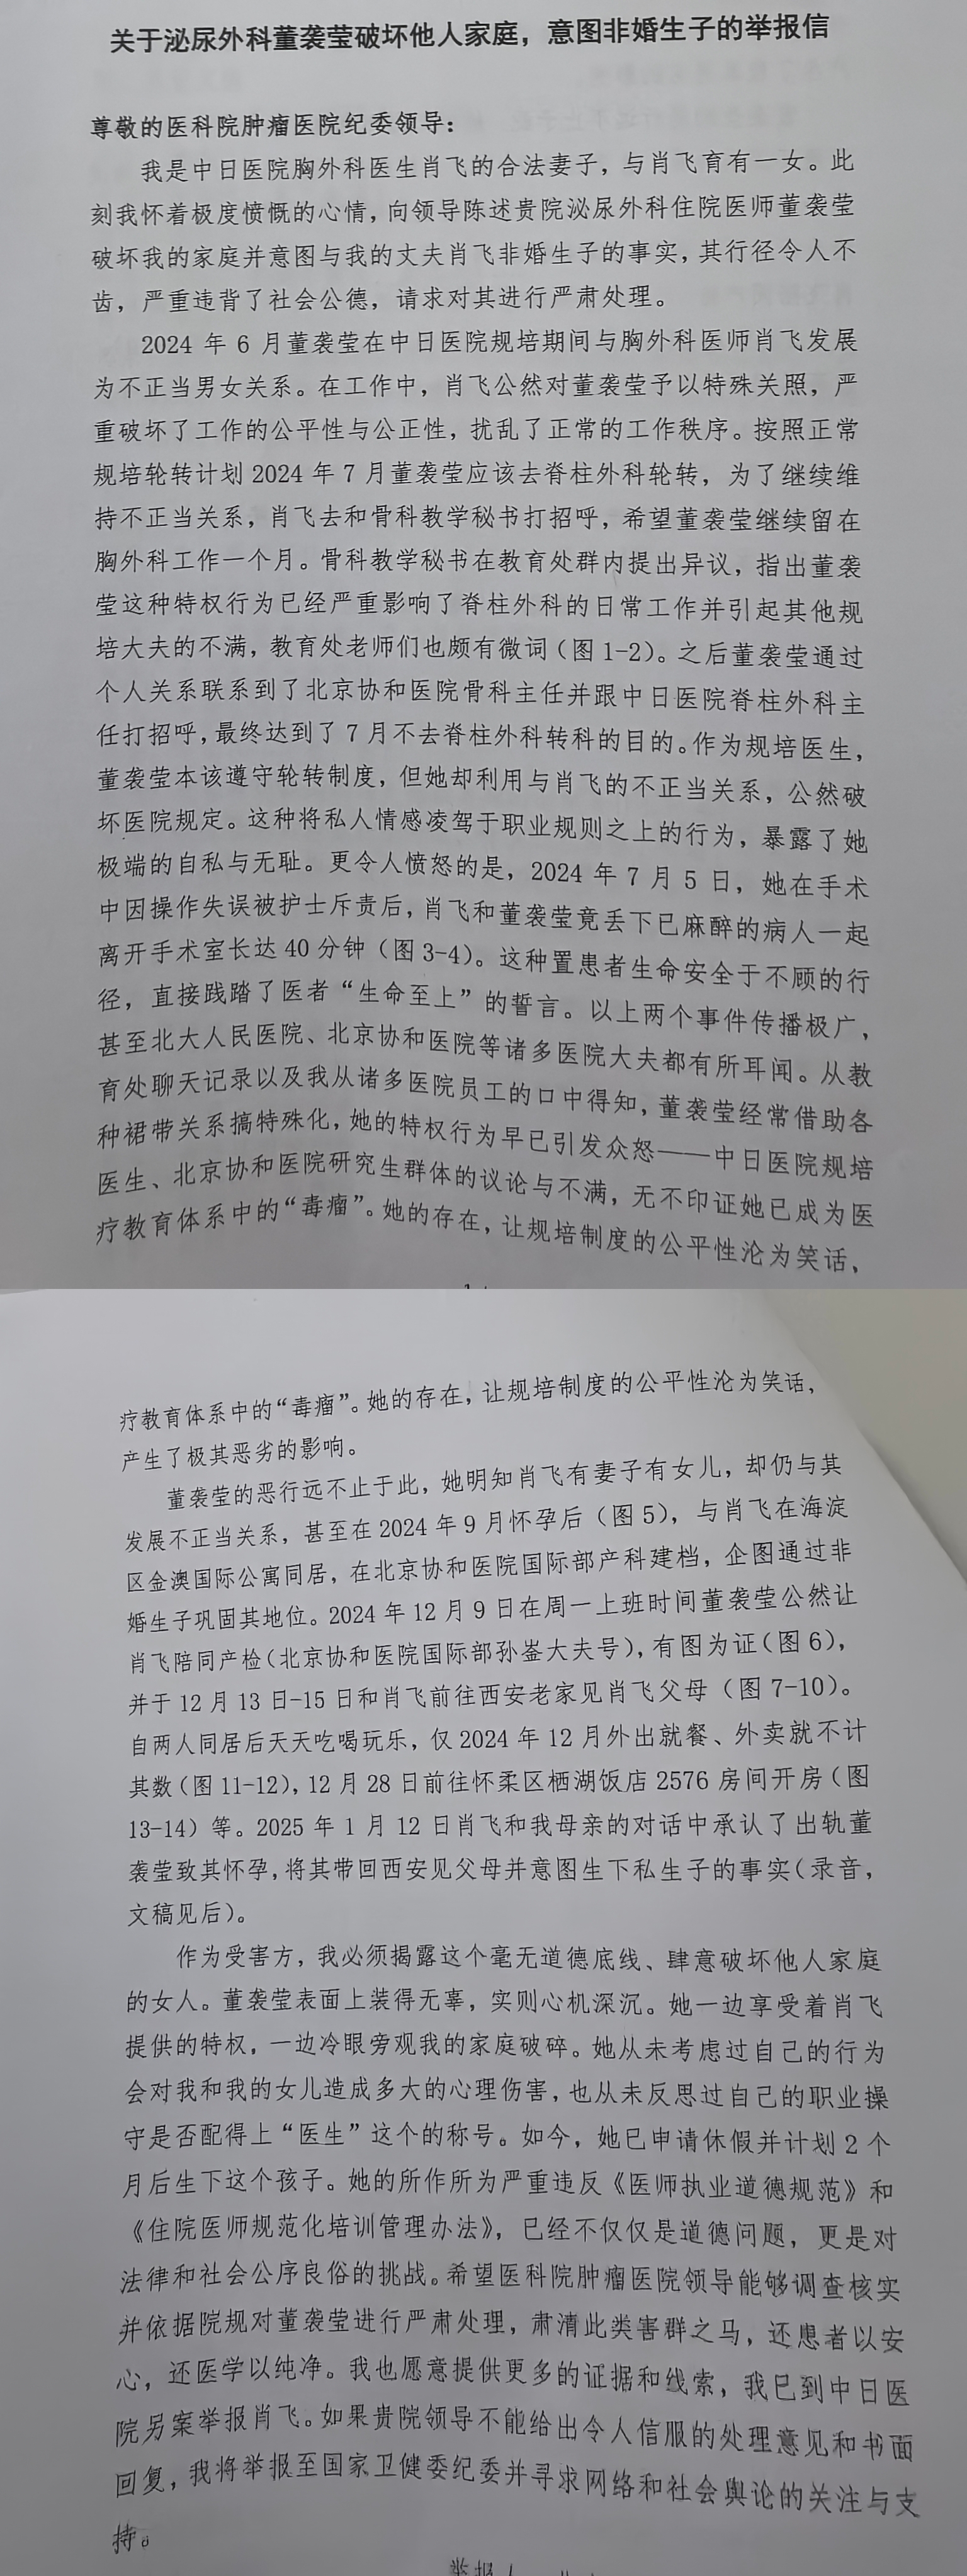 关于泌尿外科董袭莹破坏他人家庭，意图非婚生子的举报信
尊敬的医科院肿瘤医院纪委领导：
我是中日医院胸外科医生肖飞的合法妻子，与肖飞育有一女。此
刻我怀着极度愤慨的心情，向领导陈述贵院泌尿外科住院医师董袭莹
破坏我的家庭并意图与我的丈夫肖飞非婚生子的事实，其行径令人不
齿，严重违背了社会公德，请求对其进行严肃处理。
2024 年 6 月董袭莹在中日医院规培期间与胸外科医师肖飞发展
为不正当男女关系。在工作中，肖飞公然对董袭莹予以特殊关照，严
重破坏了工作的公平性与公正性，扰乱了正常的工作秩序。按照正常
规培轮转计划 2024 年 7 月董袭莹应该去脊柱外科轮转，为了继续维
持不正当关系，肖飞去和骨科教学秘书打招呼，希望董袭莹继续留在
胸外科工作一个月。骨科教学秘书在教育处群内提出异议，指出董袭
莹这种特权行为已经严重影响了脊柱外科的日常工作并引起其他规
培大夫的不满，教育处老师们也颇有微词（图 1-2）。之后董袭莹通过
个人关系联系到了北京协和医院骨科主任并跟中日医院脊柱外科主
任打招呼，最终达到了 7 月不去脊柱外科转科的目的。作为规培医生，
董袭莹本该遵守轮转制度，但她却利用与肖飞的不正当关系，公然破
坏医院规定。这种将私人情感凌驾于职业规则之上的行为，暴露了她
极端的自私与无耻。更令人愤怒的是，2024 年 7 月 5 日，她在手术
中因操作失误被护士斥责后，肖飞和董袭莹竟丢下已麻醉的病人一起
离开手术室长达 40 分钟（图 3-4）。这种置患者生命安全于不顾的行
径，直接践踏了医者“生命至上”的誓言。以上两个事件传播极广，
甚至北大人民医院、北京协和医院等诸多医院大夫都有所耳闻。从教
育处聊天记录以及我从诸多医院员工的口中得知，董袭莹经常借助各
种裙带关系搞特殊化，她的特权行为早已引发众怒——中日医院规培
医生、北京协和医院研究生群体的议论与不满，无不印证她已成为医
疗教育体系中的“毒瘤”。她的存在，让规培制度的公平性沦为笑话，
疗教育体系中的“毒瘤”。她的存在，让规培制度的公平性沦为笑话，
产生了极其恶劣的影响。
董袭莹的恶行远不止于此，她明知肖飞有妻子有女儿，却仍与其
发展不正当关系，甚至在 2024 年 9 月怀孕后（图 5），与肖飞在海淀
区金澳国际公寓同居，在北京协和医院国际部产科建档，企图通过非
婚生子巩固其地位。2024 年 12 月 9 日在周一上班时间董袭莹公然让
肖飞陪同产检（北京协和医院国际部孙崟大夫号），有图为证（图 6），
并于 12 月 13 日-15 日和肖飞前往西安老家见肖飞父母（图 7-10）。
自两人同居后天天吃喝玩乐，仅 2024 年 12 月外出就餐、外卖就不计
其数（图 11-12），12 月 28 日前往怀柔区栖湖饭店 2576 房间开房（图
13-14）等。2025 年 1 月 12 日肖飞和我母亲的对话中承认了出轨董
袭莹致其怀孕，将其带回西安见父母并意图生下私生子的事实（录音，
文稿见后）。
作为受害方，我必须揭露这个毫无道德底线、肆意破坏他人家庭
的女人。董袭莹表面上装得无辜，实则心机深沉。她一边享受着肖飞
提供的特权，一边冷眼旁观我的家庭破碎。她从未考虑过自己的行为
会对我和我的女儿造成多大的心理伤害，也从未反思过自己的职业操
守是否配得上“医生”这个的称号。如今，她已申请休假并计划 2 个
月后生下这个孩子。她的所作所为严重违反《医师执业道德规范》和
《住院医师规范化培训管理办法》，已经不仅仅是道德问题，更是对
法律和社会公序良俗的挑战。希望医科院肿瘤医院领导能够调查核实
并依据院规对董袭莹进行严肃处理，肃清此类害群之马，还患者以安
心，还医学以纯净。我也愿意提供更多的证据和线索，我已到中日医
院另案举报肖飞。如果贵院领导不能给出令人信服的处理意见和书面
回复，我将举报至国家卫健委纪委并寻求网络和社会舆论的关注与支
持。